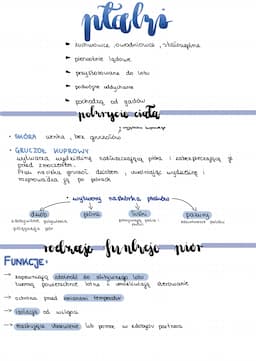 ptaki
► kręgowce, owodniowce, stałocieplne
► pierwotnie lądowe
► przystosowane do lotu
► podwójne oddychanie
► pochodzą od gadów
pokrycie ciała
• SKÓRA cienka, bez gruczołów
• GRUCZOŁ KUPROWY
wytwarza wydzielinę natłuszczającą pióra i zabezpieczającą je
przed zmoczeniem.
Ptak naciska gruczoł dziobem, uwalniając wydzielinę i
rozprowadza ją po piórach
• wytwory naskórka ptaków
dziób pióra łuski pazury
rodzaje funkcje piór
FUNKCJE:
→ zapewniają zdolność do aktywnego lotu
tworzą powierzchnie lotne i umożliwiają sterowanie
→ ochrona przed zmianami temperatur
→ izolacja od wilgoci
→ maskujące ubarwienie lub pomoc w zdobyciu partnera